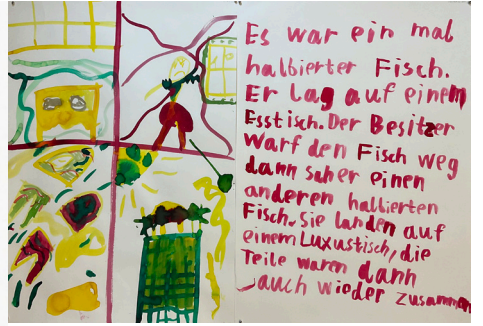 Es war ein mal
halbierter Fisch.
Er Lag auf einem
Esstisch. Der Besitzer
Warf den Fisch weg
dann saher einen
anderen hallierten
Fisch. Sie landen auf
einem Luxustisch, die
Teile waren dann
auch wieder zusammen